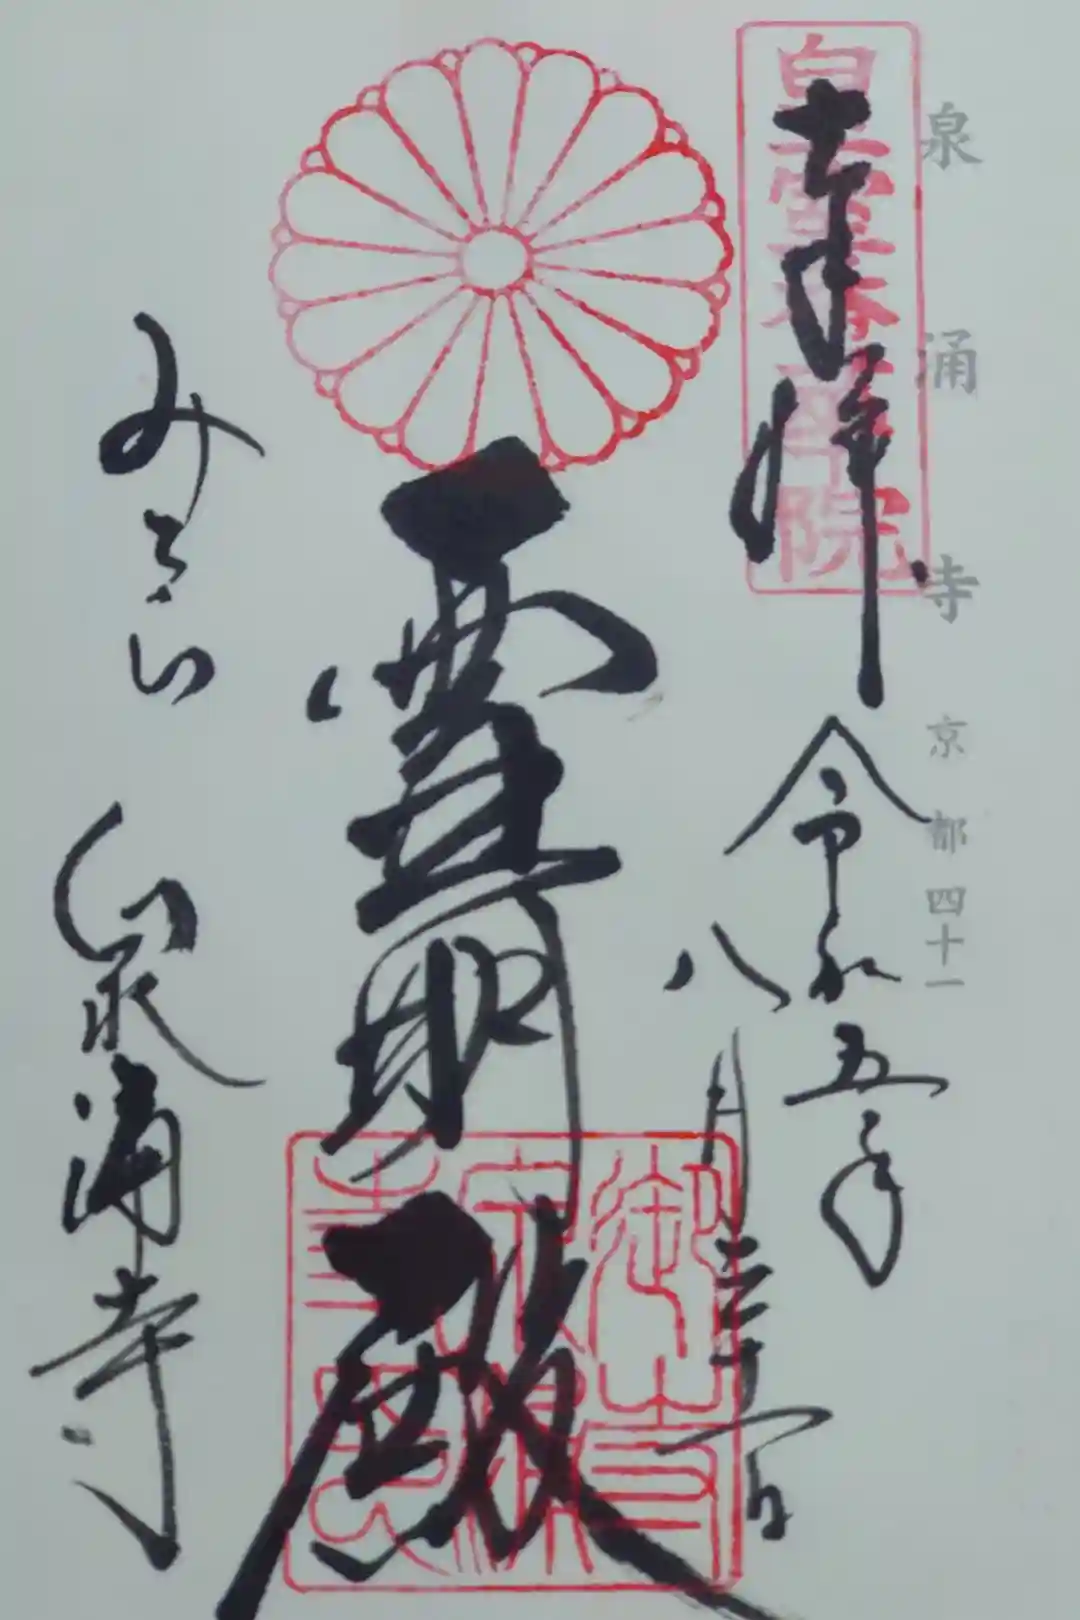 泉涌寺 京都四十一
皇室香華院
奉拝
令和五年
八月二十日
霊明殿
みてら
泉涌寺